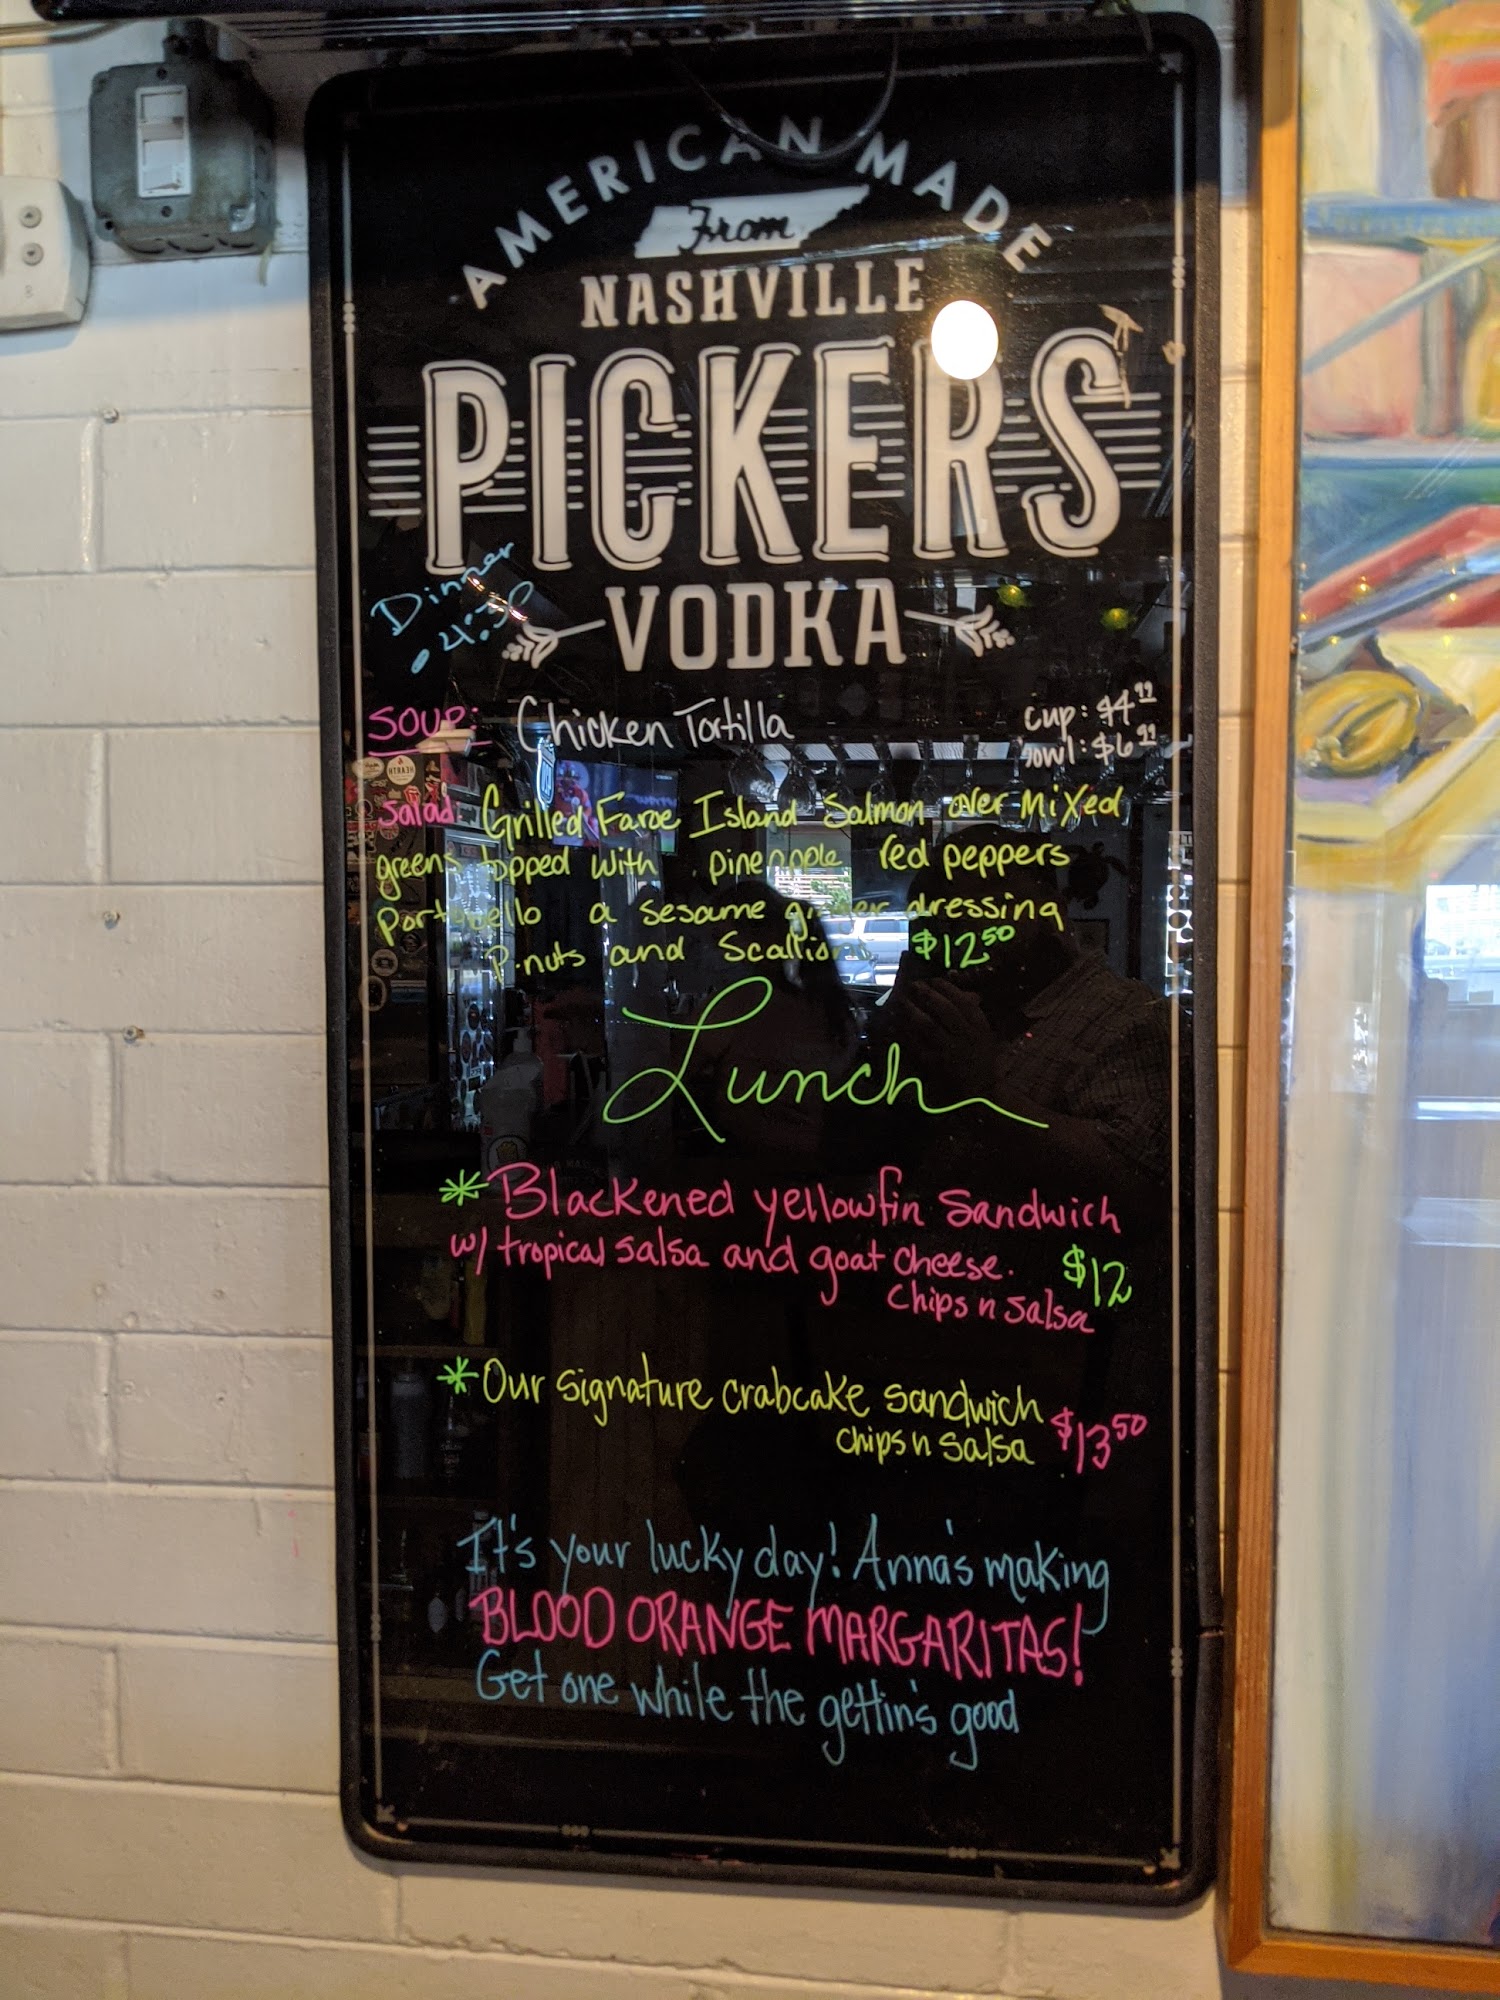 AMERICAN MADE
From
NASHVILLE
PICKERS
VODKA
Dinner
4:30
SOUP: Chicken Tortilla
cup: $4.99
bowl: $6.99
Salad Grilled Faroe Island Salmon over Mixed
greens topped with pineapple red peppers
Portobello a sesame ginger dressing
P-nuts and Scallions $12.50
Lunch
* Blackened yellowfin sandwich
w/ tropical salsa and goat cheese. $12
Chips n salsa
* Our signature crabcake sandwich
chips n salsa $13.50
It's your lucky day! Anna's making
BLOOD ORANGE MARGARITAS!
Get one while the gettin's good